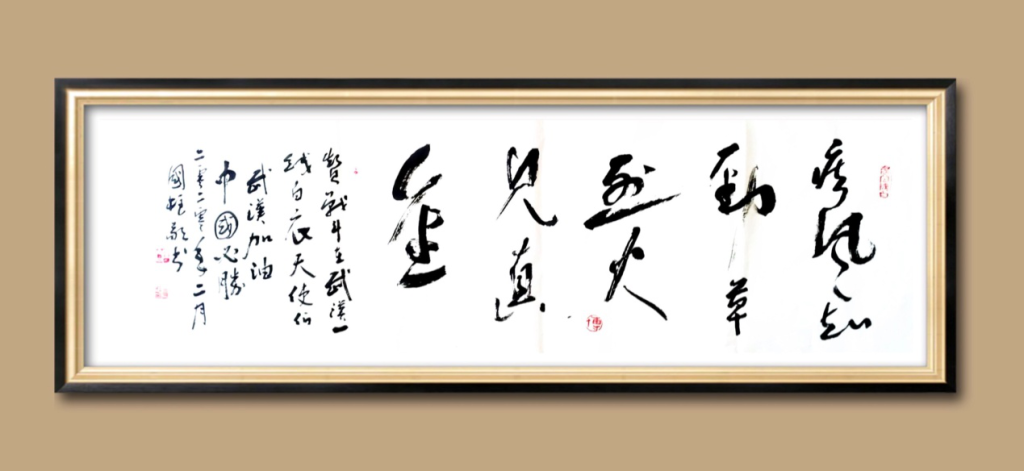 疾风知
勁草
烈火
見真
金
贊戰斗在武漢一
线白衣天使们
武漢加油
中國必勝
二零二零年二月
國柱敬书